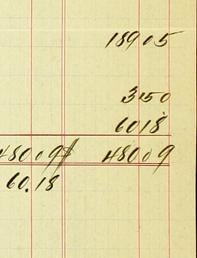 18905
3150
6018
48009 48009
60.18